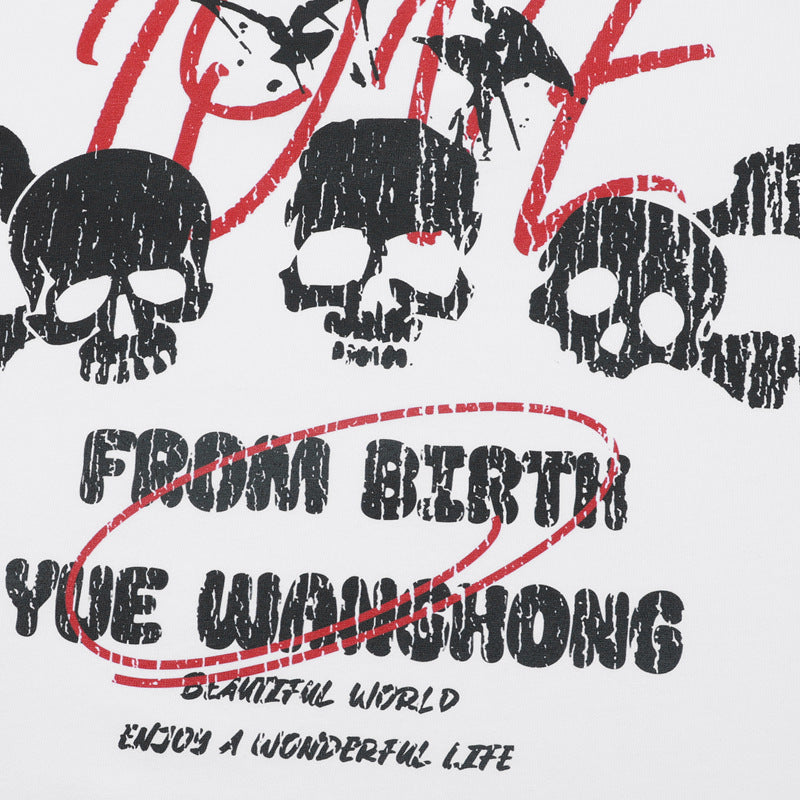 FROM BIRTH
YUE WANGHONG
BEAUTIFUL WORLD
ENJOY A WONDERFUL LIFE